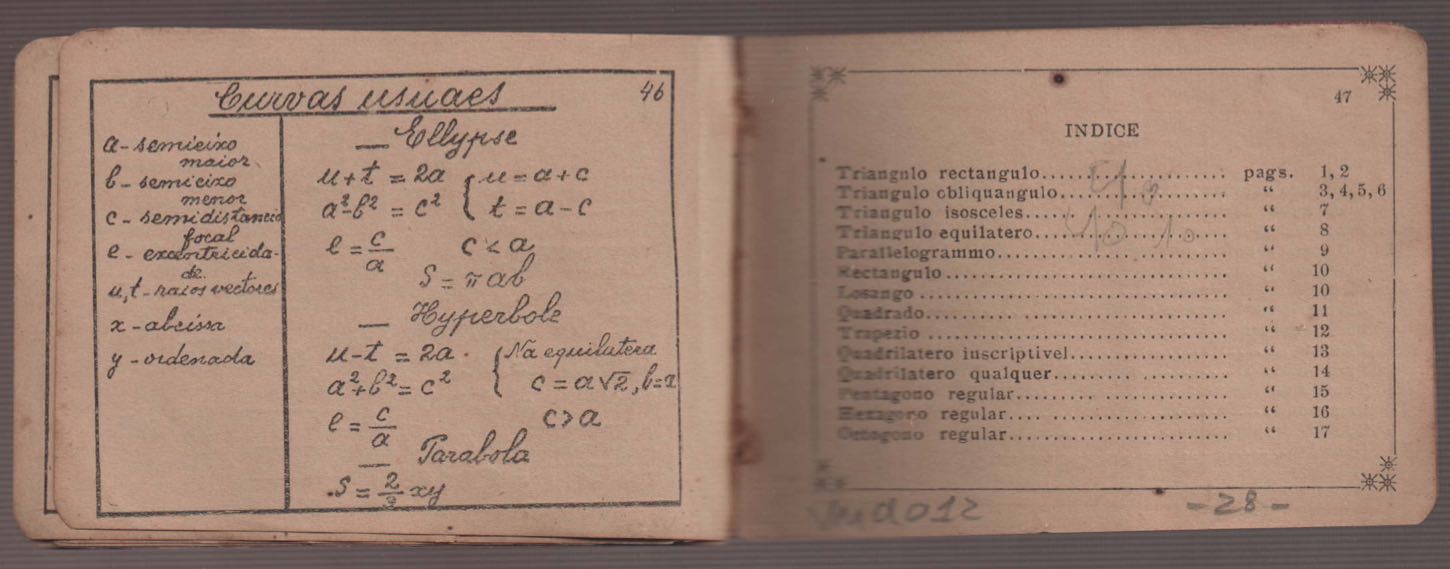 Curvas usuaes
46
a - semieixo
maior
b - semieixo
menor
c - semidistancia
focal
e - excentricida-
de
u, t - raios vectores
x - abcissa
y - ordenada
— Ellypse
u + t = 2a { u = a + c
a² - b² = c² t = a - c
e = c/a c < a
S = π ab
— Hyperbole
u - t = 2a { Na equilatera
a² + b² = c² c = a √2, b = a
e = c/a c > a
— Parabola
S = 2/3 xy
47
INDICE
Triangulo rectangulo.................... pags. 1, 2
Triangulo obliquangulo.................. “ 3, 4, 5, 6
Triangulo isosceles..................... “ 7
Triangulo equilatero.................... “ 8
Parallelogrammo......................... “ 9
Rectangulo.............................. “ 10
Losango................................. “ 10
Quadrado................................ “ 11
Trapezio................................ “ 12
Quadrilatero inscriptivel............... “ 13
Quadrilatero qualquer................... “ 14
Pentagono regular....................... “ 15
Hexagono regular........................ “ 16
Octogono regular........................ “ 17
- 28 -